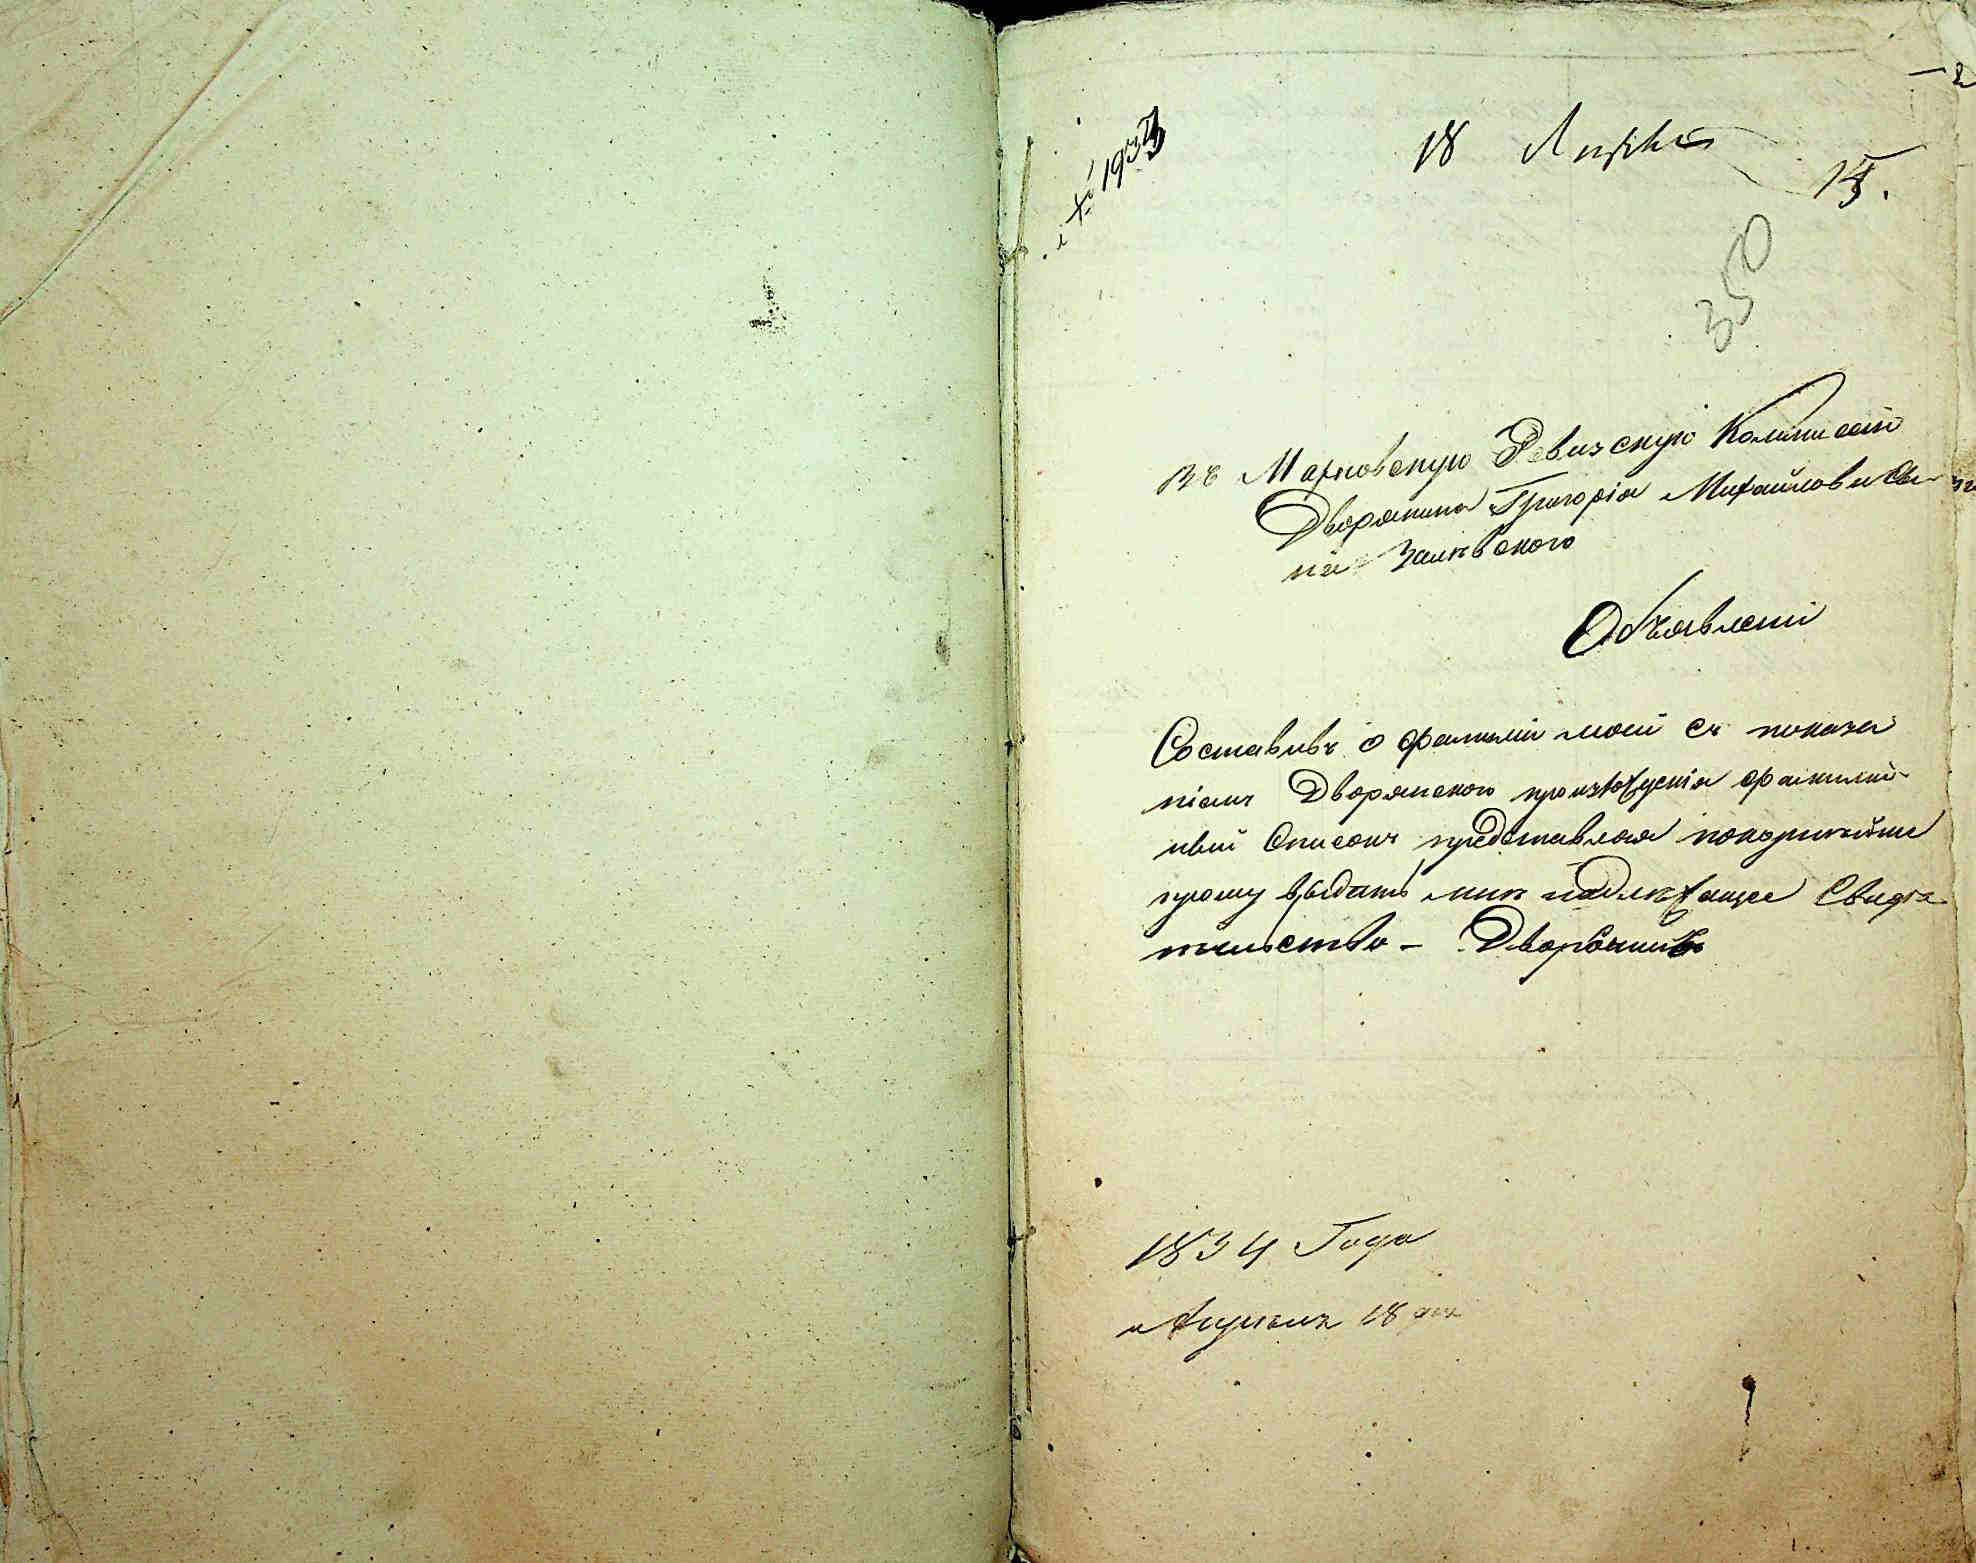 18 Апрѣля
15.
350
Въ Марковскую Ревизскую Коммисию
Дворянина Григорія Михайлова Сы-
на
Объявленіе
Составивъ о фамиліи моей съ показа
ніемъ Дворянского произхожденія фамилій-
ный Списокъ представляя покорнейше
прошу выдать мнѣ надлѣжащее Свидѣ
тельство –
1834 Года
Апрѣля 18 дня